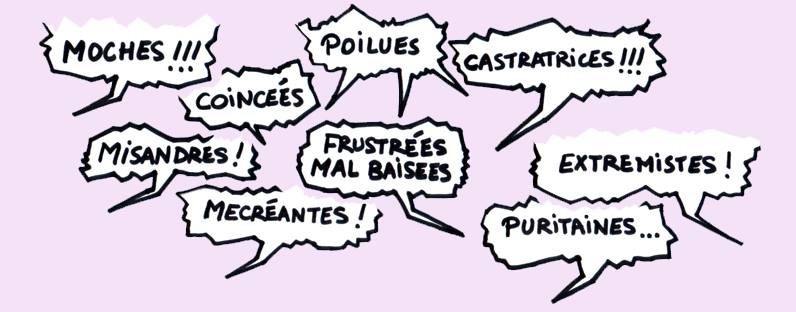 MOCHES !!!
POILUES
CASTRATRICES !!!
COINCEÉS
MISANDRES !
FRUSTRÉES
MAL BAISEES
EXTREMISTES !
MECRÉANTES !
PURITAINES...